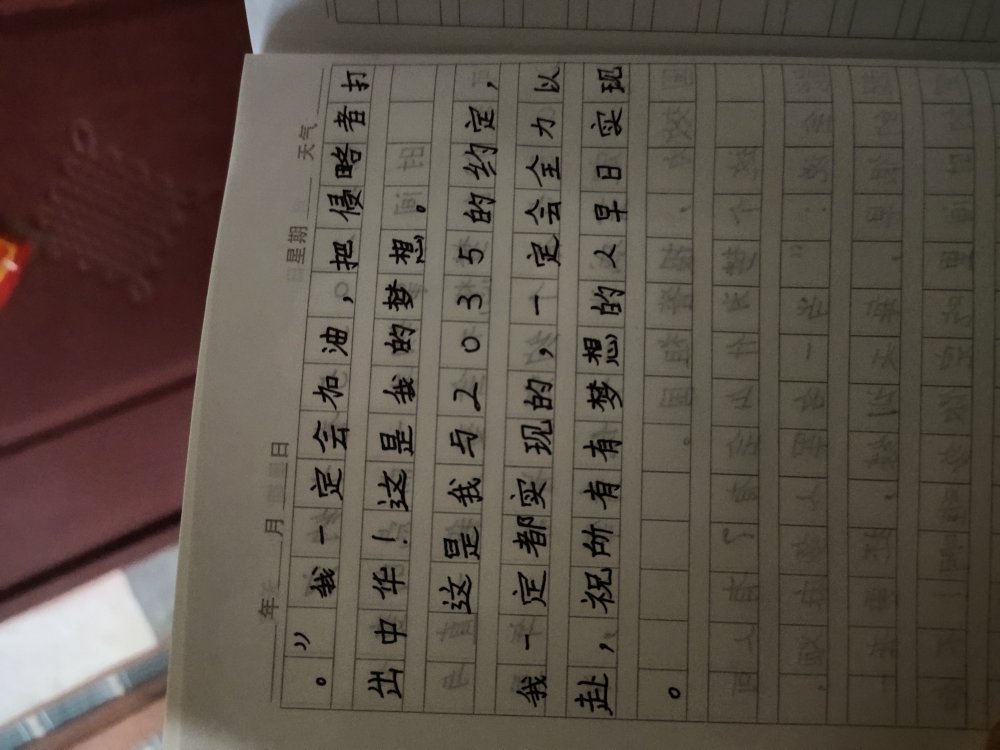 年 月 日 星期 天气
。”我一定会加油，把侵略者打
出中华！这是我的梦想。
这是我与2035的约定，
我一定都实现的，一定会全力以
赴，祝所有有梦想的人早日实现
。